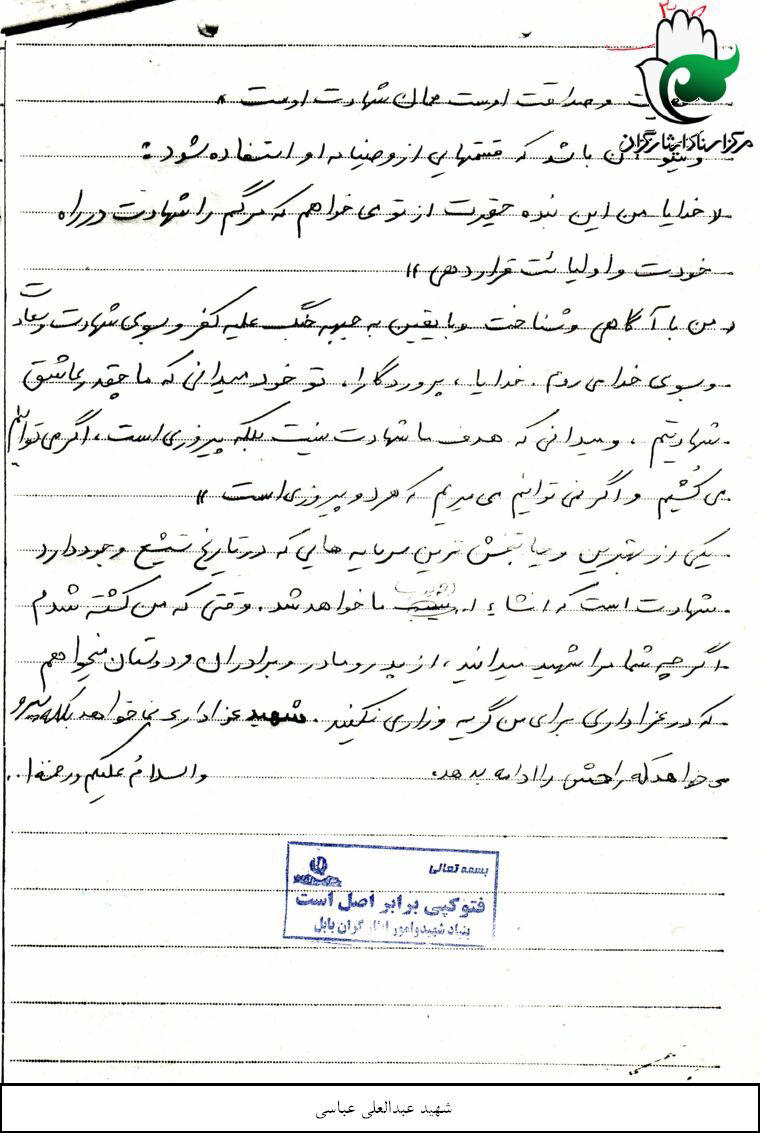 و صداقت اوست همان شهادت اوست »
باشد که قسمتهایی از وصیتنامه او استفاده شود :
مرکز اسناد ایثارگران
« خدایا من این بنده حقیرت از تو می خواهم که مرگم را شهادت در راه
خودت و اولیائت قرار دهی »
من با آگاهی و شناخت و با یقین به جبهه جنگ علیه کفر و بسوی شهادت و سعادت
و بسوی خدا می روم . خدایا ، پروردگارا ، تو خود میدانی که ما چقدر عاشق
شهادتیم ، و میدانی که هدف ما شهادت نیست بلکه پیروزی است ، اگر می توانیم
می کُشیم و اگر نمی توانیم می میریم که هر دو پیروزی است »
یکی از بهترین و حیات بخش ترین سرمایه هایی که در تاریخ تشیع وجود دارد
شهادت است که انشاء ا.. ما خواهد شد . وقتی که من کشته شدم
اگر چه شما مرا شهید میدانید ، از پدر و مادر و برادران و دوستان میخواهم
که در عزاداری برای من گریه وزاری نکنید . شهید عزاداری نمی خواهد بلکه پیرو
می خواهد که راهش را ادامه بدهد . والسلامُ علیکم ورحمة ا...
بسمه تعالی
فتوکپی برابر اصل است
بنیاد شهید و امور ایثارگران بابل
شهید عبدالعلی عباسی